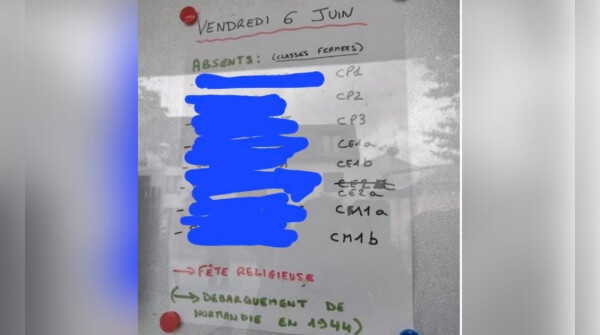 VENDREDI 6 JUIN
ABSENTS: (CLASSES FERMÉES)
CP1
CP2
CP3
CE1a
CE1b
CE2a
CM1a
CM1b
→ FÊTE RELIGIEUSE
(→ DEBARQUEMENT DE
NORMANDIE EN 1944)